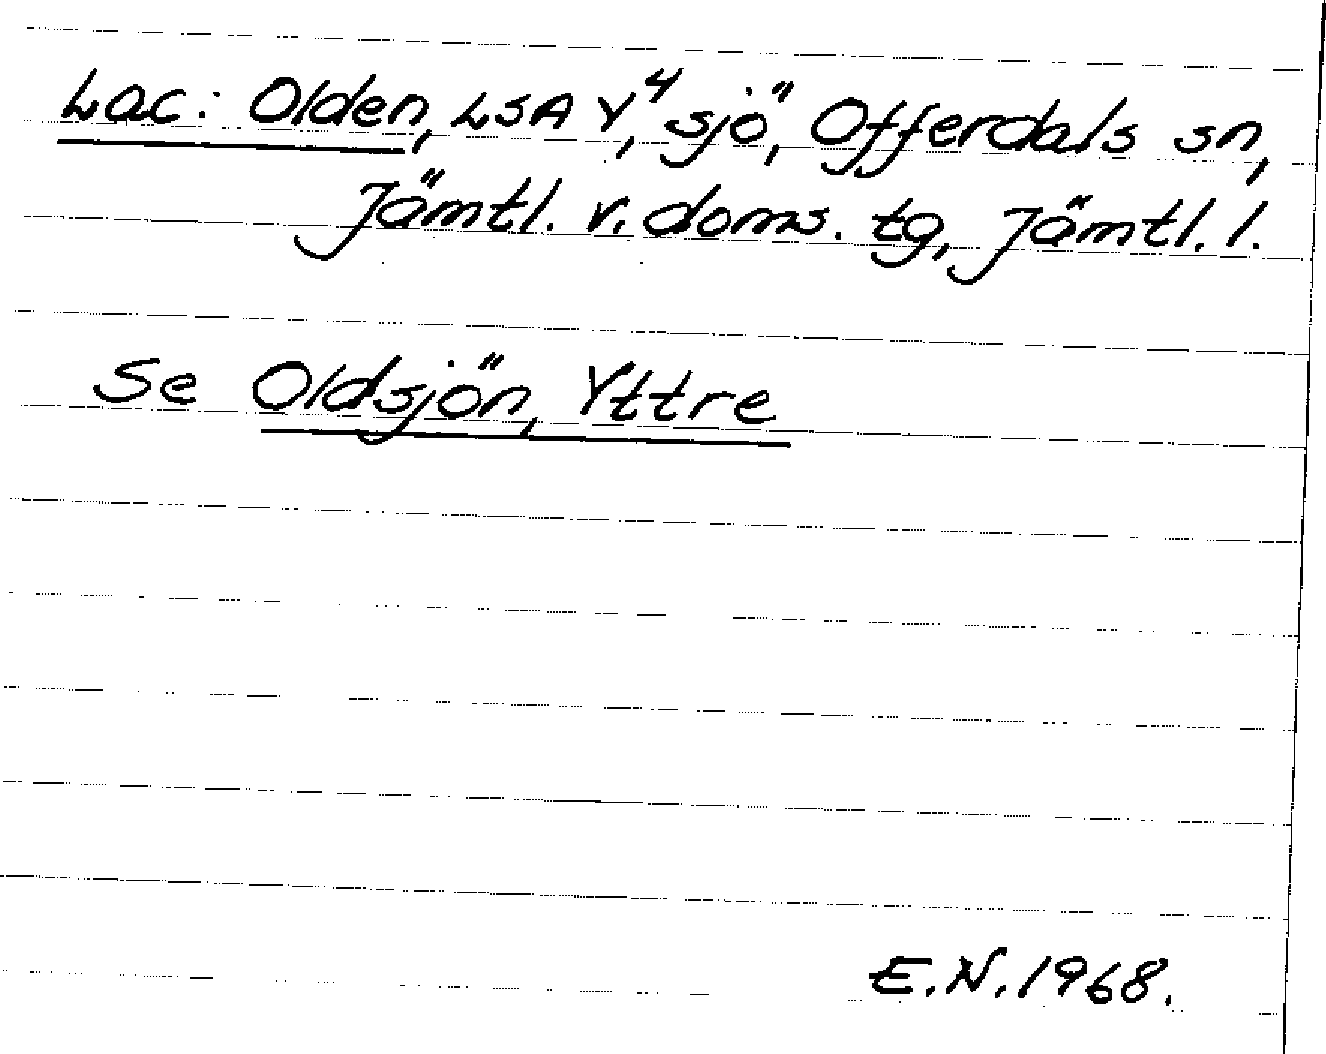 Lac: Olden, LSA Y⁴, sjö, Offerdals sn,
Jämtl. v. doms. tg, Jämtl. l.
Se Oldsjön, Yttre
E.N. 1968.